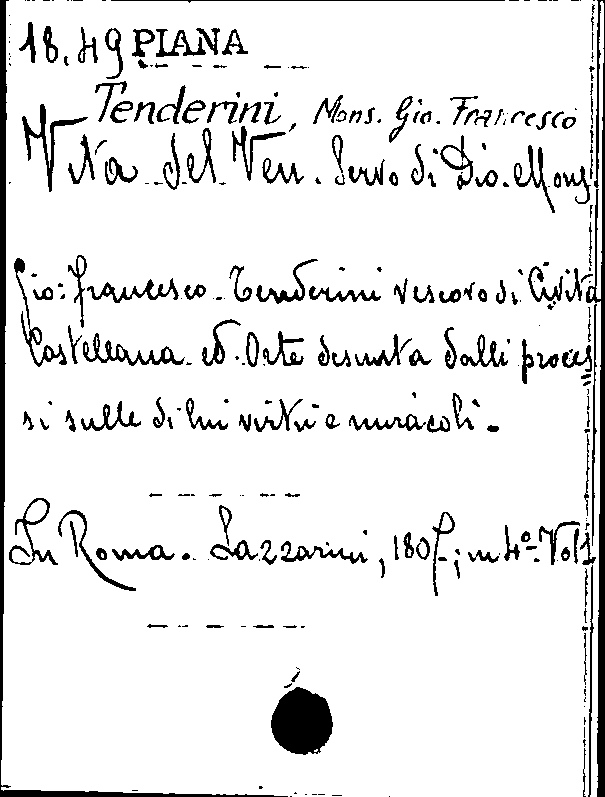 18.49 PIANA
Tenderini, Mons. Gio. Francesco
Vita del Ven. Servo di Dio. Mons.
Gio: Francesco. Tenderini vescovo di Civita
Castellana ed Orte desunta dalli proces
si sulle di lui virtù e miracoli.
In Roma. Lazzarini, 180 ; in 4º. Vol 1